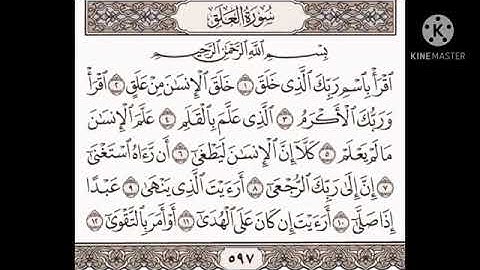 سُورَةُ الْعَلَقِ
بِسْمِ اللَّهِ الرَّحْمَٰنِ الرَّحِيمِ
اقْرَأْ بِاسْمِ رَبِّكَ الَّذِي خَلَقَ ١ خَلَقَ الْإِنسَانَ مِنْ عَلَقٍ ٢ اقْرَأْ
وَرَبُّكَ الْأَكْرَمُ ٣ الَّذِي عَلَّمَ بِالْقَلَمِ ٤ عَلَّمَ الْإِنسَانَ
مَا لَمْ يَعْلَمْ ٥ كَلَّا إِنَّ الْإِنسَانَ لَيَطْغَىٰ ٦ أَن رَّءَاهُ اسْتَغْنَىٰ
٧ إِنَّ إِلَىٰ رَبِّكَ الرُّجْعَىٰ ٨ أَرَءَيْتَ الَّذِي يَنْهَىٰ ٩ عَبْدًا
إِذَا صَلَّىٰ ١٠ أَرَءَيْتَ إِن كَانَ عَلَى الْهُدَىٰ ١١ أَوْ أَمَرَ بِالتَّقْوَىٰ ١٢
٥٩٧
KINEMASTER